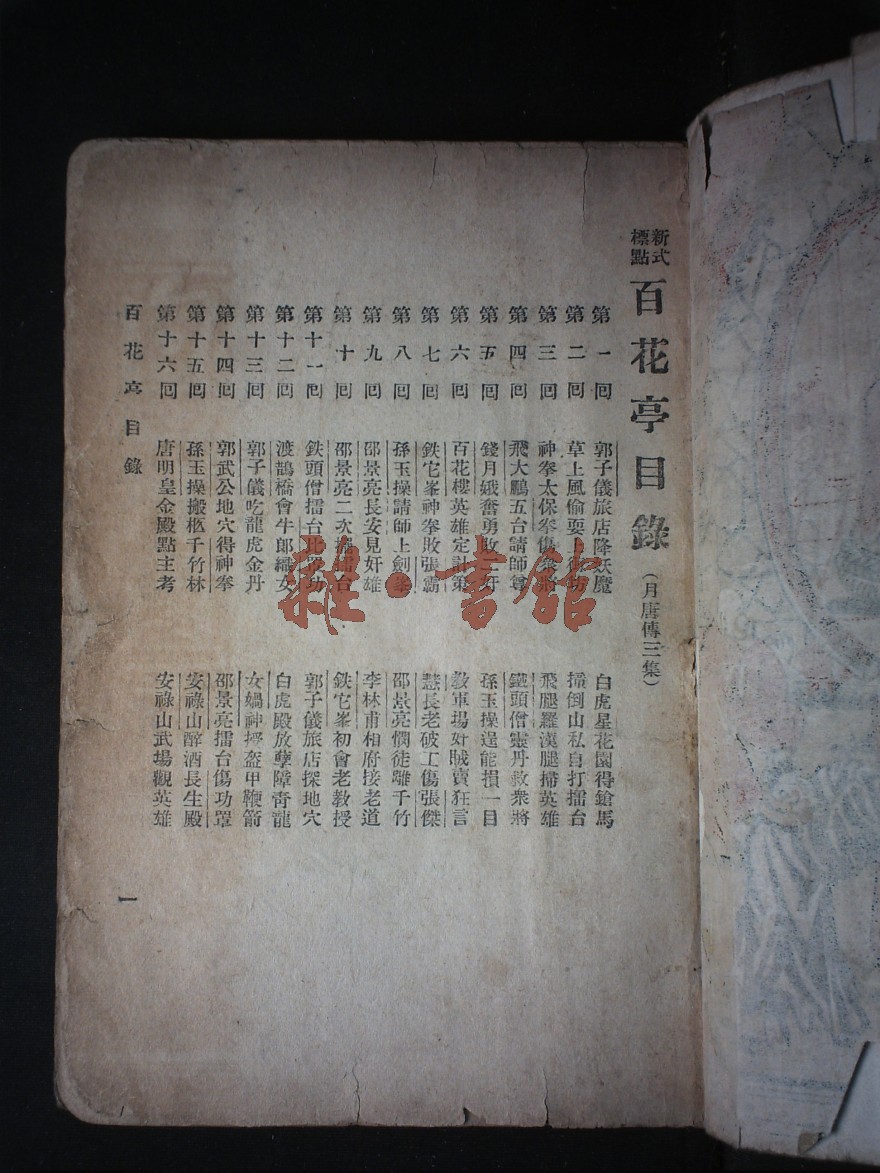 新式標點 百花亭目錄（月唐傳三集）
第一回 郭子儀旅店降妖魔 白虎星花園得鎗馬
第二回 草上風偷耍上 撞倒山私自打擂台
第三回 神拳太保拳傷 將 飛腿羅漢腿掃英雄
第四回 飛大鵬五台請師尊 鐵頭僧靈丹救衆將
第五回 錢月娥奮勇敗 奸 孫玉操逞能損一目
第六回 百花樓英雄定計策 敎軍場奸賊賣狂言
第七回 鉄它峯神拳敗張霸 慧長老破工傷張傑
第八回 孫玉操請師上劍峯 邵景亮憫徒離千竹
第九回 邵景亮長安見奸雄 李林甫相府接老道
第十回 邵景亮二次擺擂台 鉄它峯初會老教授
第十一回 鉄頭僧擂台比罩功 郭子儀旅店探地穴
第十二回 渡鵲橋會牛郎織女 白虎殿放孽障靑龍
第十三回 郭子儀吃龍虎金丹 女媧神授盔甲鞭箭
第十四回 郭武公地穴得神拳 邵景亮擂台傷功罩
第十五回 孫玉操搬柩千竹林 安祿山醉酒長生殿
第十六回 唐明皇金殿點主考 安祿山武場觀英雄
百花亭 目錄
一
雜·書館